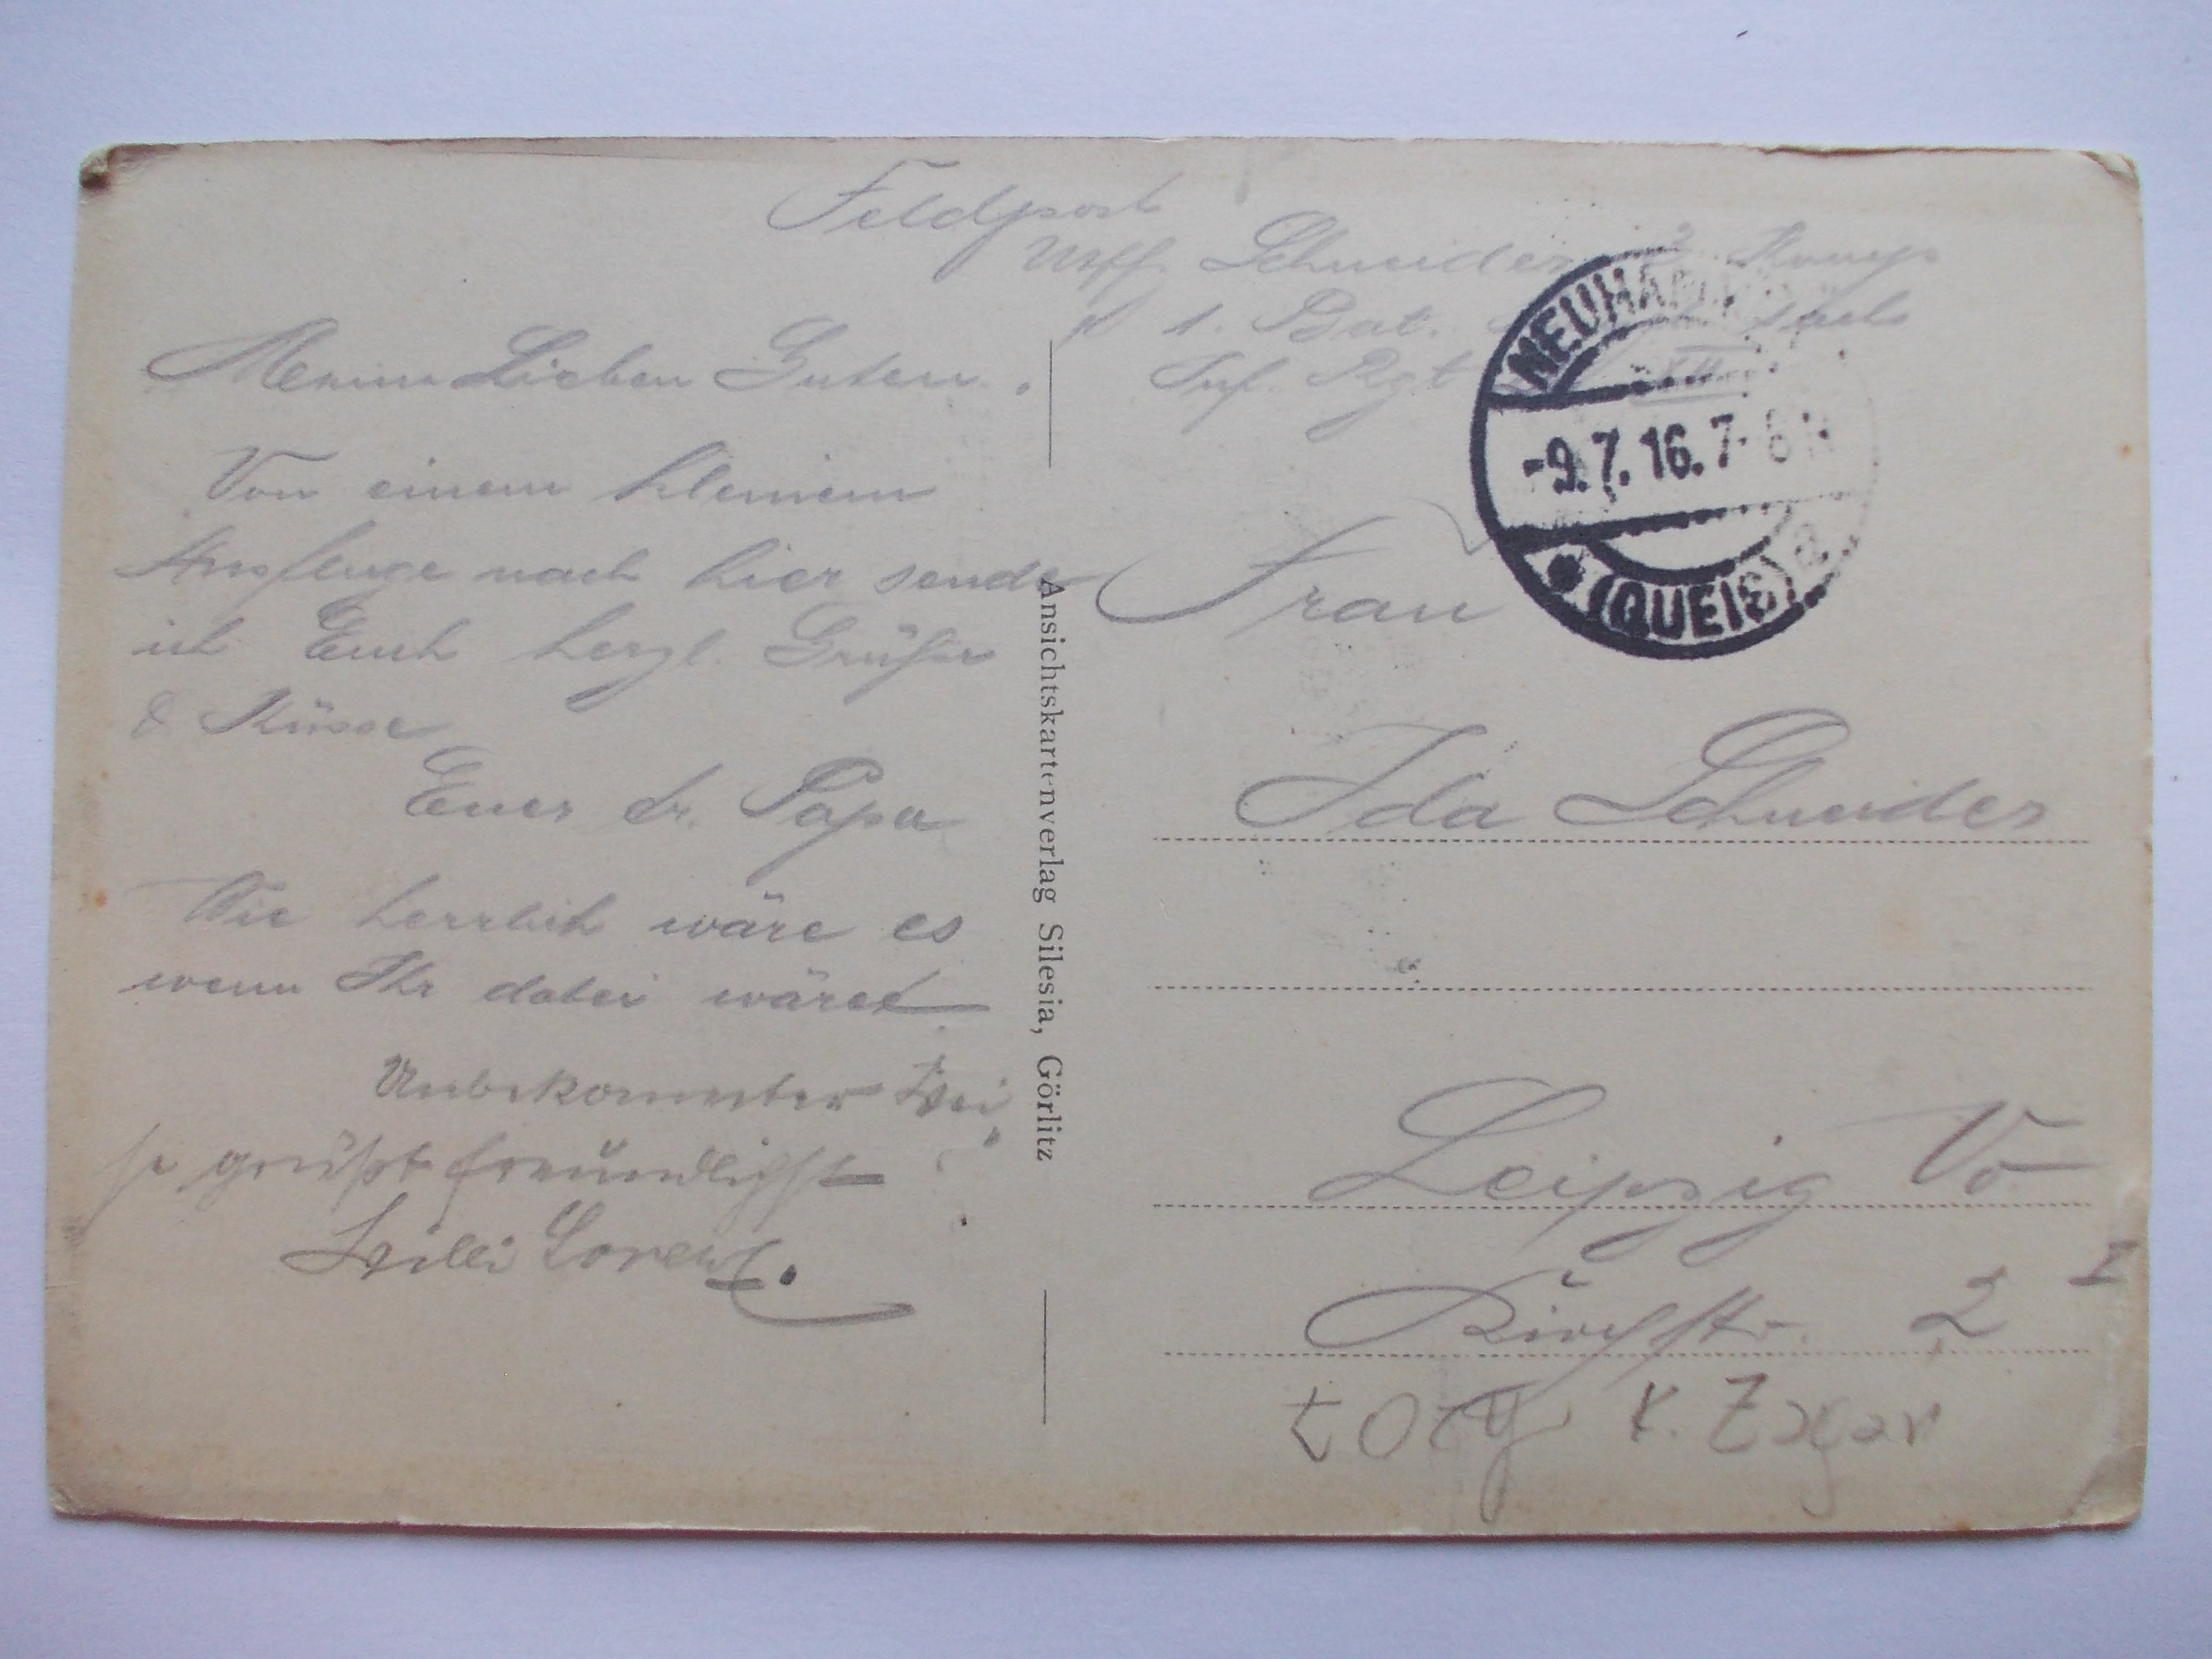 Feldpost
Uff. Schneider 2 Komp
1. Bat.
Inf. Rgt XII
NEUHAMMER
-9.7.16.7-8N
(QUEIS) a
Meine Lieben Guten.
Von einem kleinem
Ausfluge nach hier sende
ich Euch herzl. Grüße
& Küsse
Euer lb. Papa
Wie herrlich wäre es
wenn Ihr dabei wäret
Unbekannter Wei
se grüßt freundlichst
Willi Lorenz.
Ansichtskartenverlag Silesia, Görlitz
Frau
Ida Schneider
Leipzig Vo
Kirchstr. 2 I
Żory k. Żagań